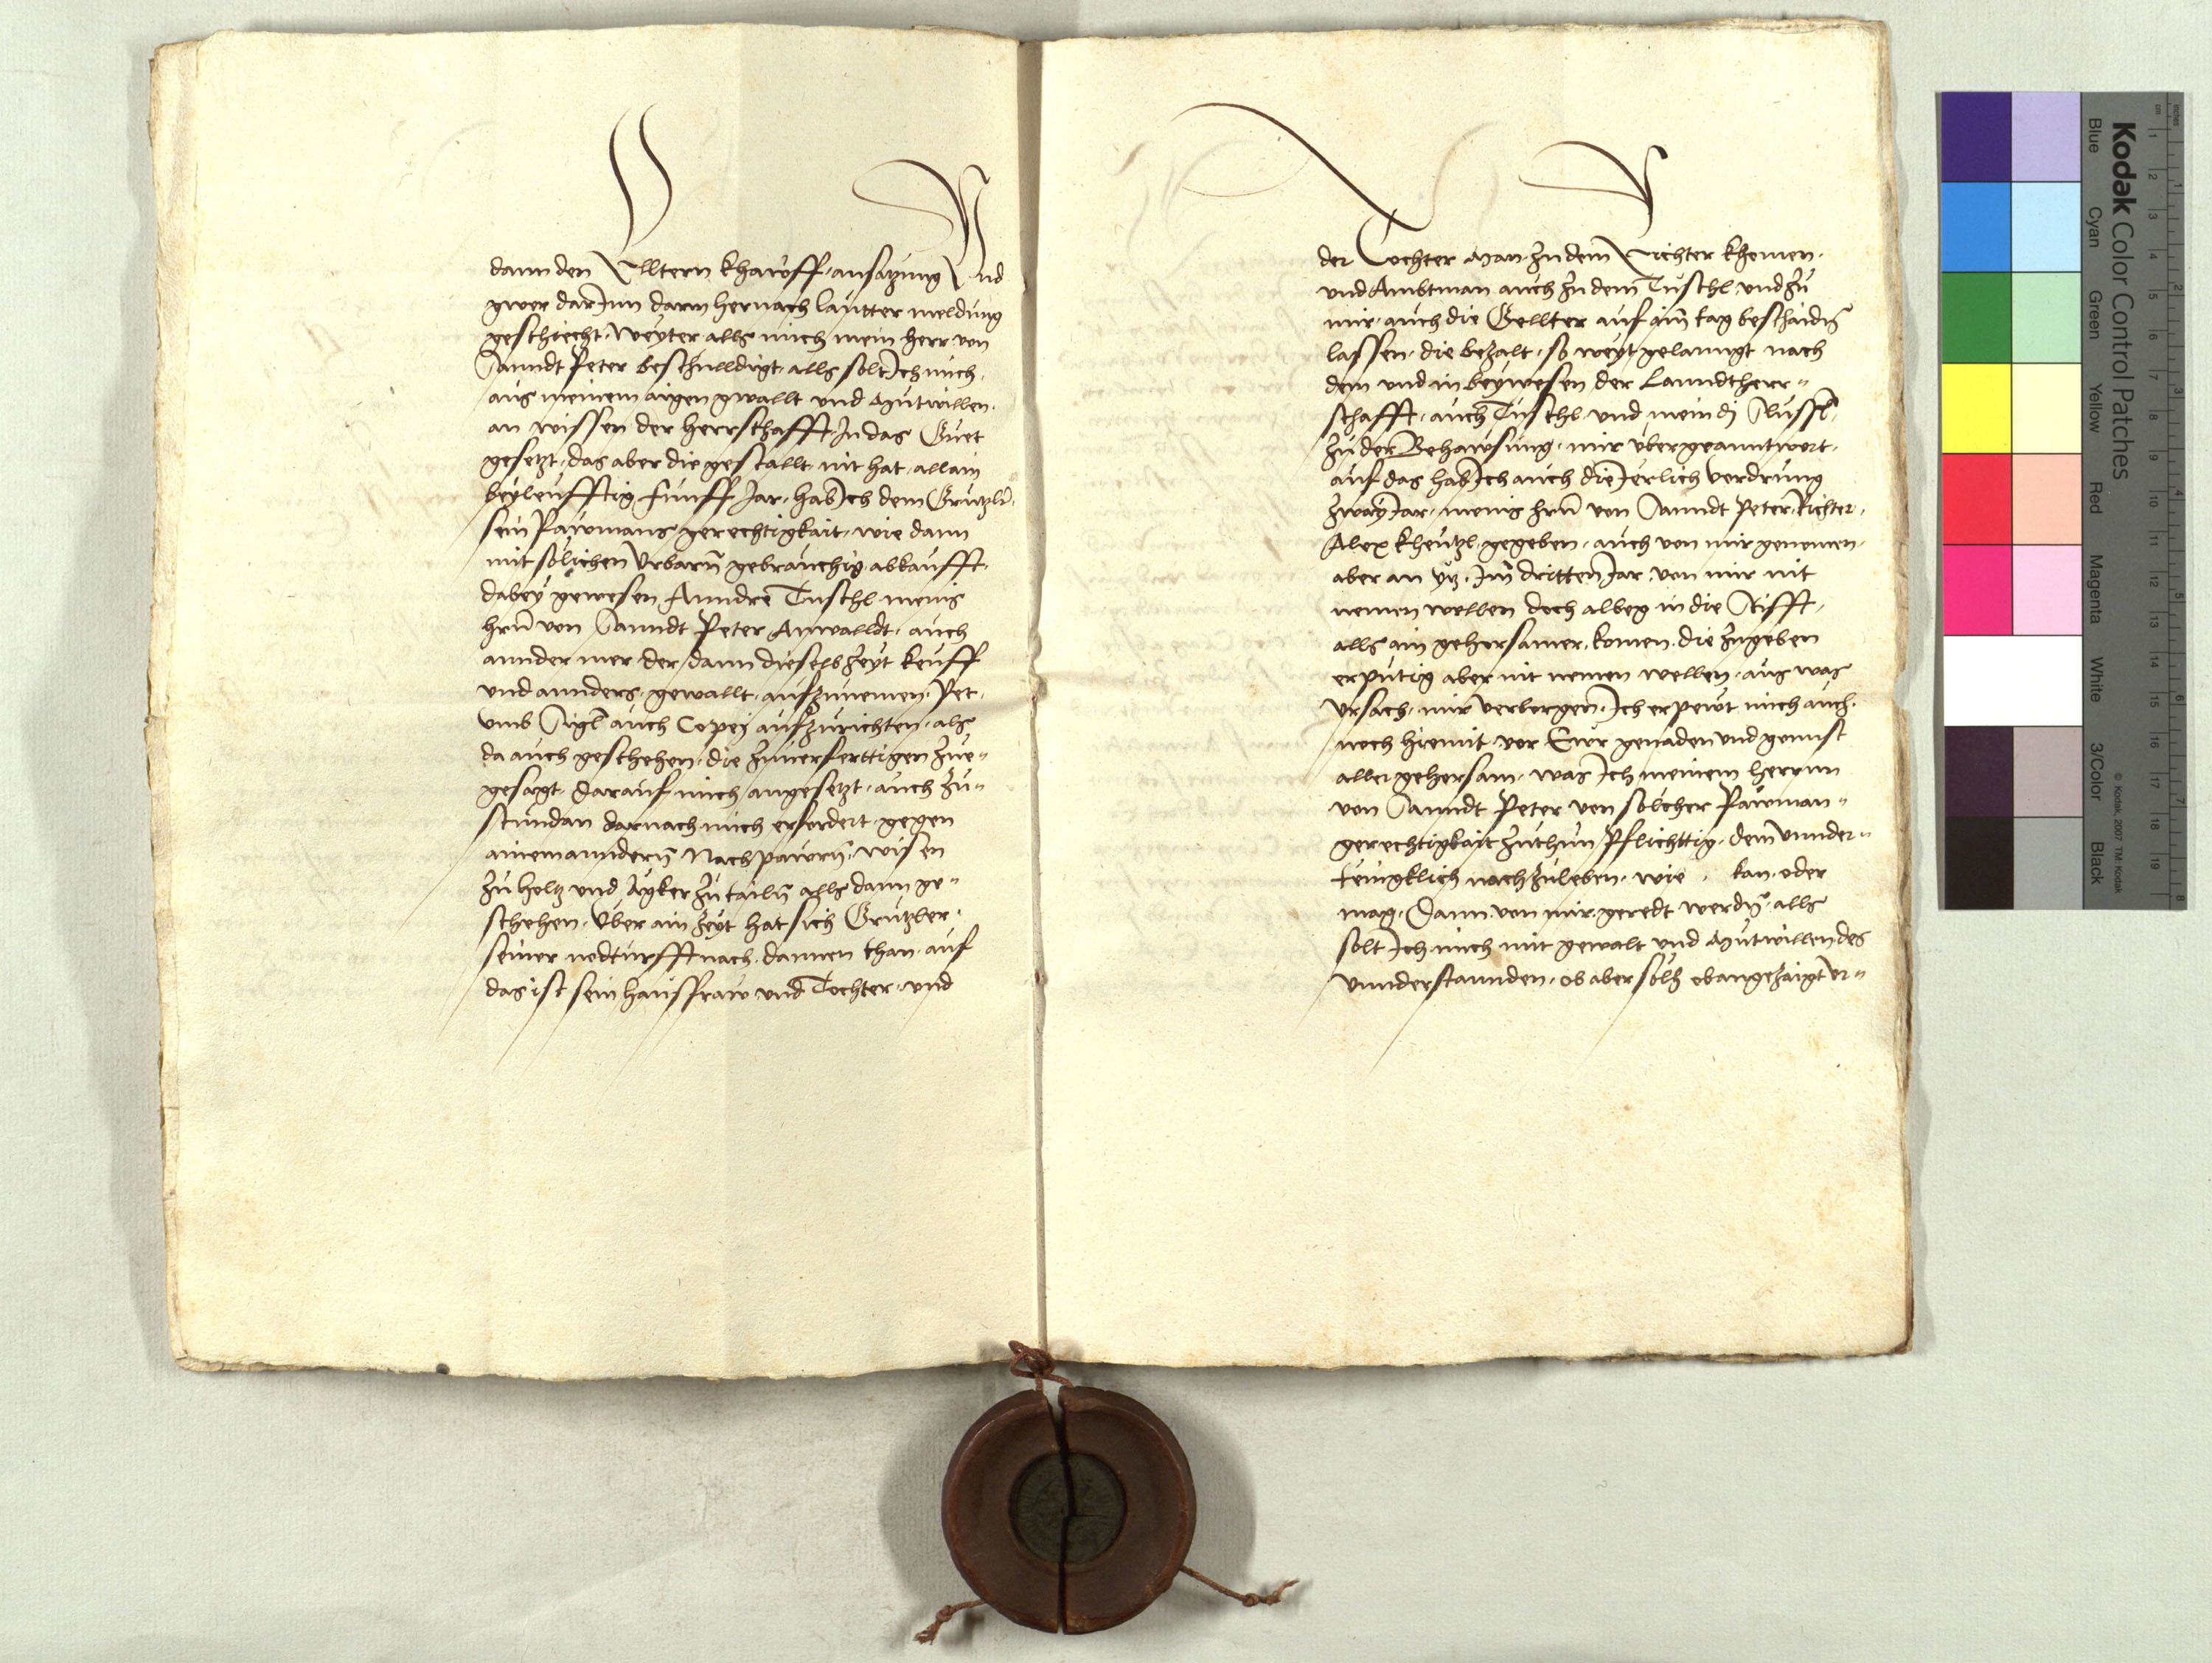 dann den Elltern khauff, ansatzung Vnd
gwer darJnn darin hernach lautter meldung
geschiecht. Weyter alls mich mein herr von
Sanndt Peter beschulldigt, alls solt Jch mich,
aus meinem aigen gwallt vnd Mutwillen,
an wissen der herrschafft, Jn das Guet
gesetzt, das aber die gestallt nit hat, allain
beyleufftig funff Jar, hab Jch dem
sein Pawmans gerechtigkait, wie dann
mit solichen Vrbarn gebrauchig, abkaufft,
dabey gewesen Anndre Tuschl meins
hrn von Sanndt Peter Anwalldt, auch
annder mer der dann dieselb zeyt keuff
vnd annders, gewallt, aufzunemen, Pet,
vmb Sigl auch Copej aufzurichten, als
da auch geschehen, die zuuerferttigen zue"
gesagt. Darauf mich angesetzt, auch zu"
stundan darnach mich erfordert, gegen
ainem anndern Nachpawrn, wisen
zu holtz vnd Agker zu tailn alls dann ge"
schehen. Vber ain zeyt hat sich Grutzler,
seiner nodturfft nach, dannen than, auf
das ist sein hausfraw vnd Tochter, vnd
der Tochter Man, zu dem Richter khomen,
vnd Ambtman auch zu dem Tuschl, vnd zu
mir, auch die Gellter auf ain tag beschaidn
lassen, die bezalt, so weyt gelanngt nach
dem vnd in beywesen der Lanndtherr"
schafft, auch Tuschl, vnd mein die Slussl,
zu der Behawsung, mir vbergeanntwort,
auf das hab Jch auch die Jerlich vordrung
zway Jar, meins hrn von Sanndt Peter, Richter,
Alex kheutzl, gegeben, auch von mir genomen,
aber an ytz, Jm dritten Jar, von mir nit
nemen wellen doch albeg in die Stifft,
alls ain gehorsamer, komen, die zugeben
erputig aber nit nemen wellen, aus was
Vrsach, mir verborgen. Jch erpewt mich auch,
noch hiemit, vor Ewr genaden vnd gunst
aller gehorsam, was Jch meinem herrnn
von Sanndt Peter von solcher Pawman"
gerechtigkait zuthun Pflichttig, dem vnnder"
teingklich nachzuleben, wie, kan, oder
mag. Dann von mir, geredt werdn, alls
solt Jch mich mit gewalt vnd Mutwillen des
vnnderstannden, ob aber solh obangezaigt ver"
Kodak Color Control Patches
Blue Cyan Green Yellow Red Magenta White 3/Color Black
© Kodak, 2007 TM: Kodak